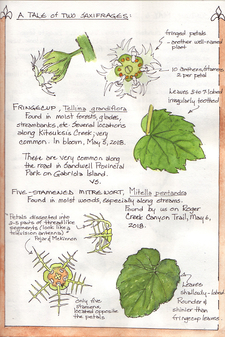 A TALE OF TWO SAXIFRAGES:
fringed petals
- another well-named
plant
10 Anthers/stamens
2 per petal
Leaves 5 to 7 lobed
irregularly toothed
FRINGECUP, Tellima grandiflora
Found in moist forests, glades,
streambanks, etc. Several locations
along Kitsuksis Creek; very
common. In bloom, May 3, 2018.
These are very common
along the road in Sandwell Provincial
Park on Gabriola Island.
VS.
FIVE-STAMENED MITREWORT, Mitella pentandra
Found in moist woods, especially along streams.
Found by us on Roger
Creek Canyon Trail, May 6,
2018.
"Petals dissected into
segments (look like
television antenna)"
Pojar & McKinnon
only five
stamens,
located opposite
the petals
Leaves
shallowly-lobed
Rounder &
shinier than
fringecup leaves